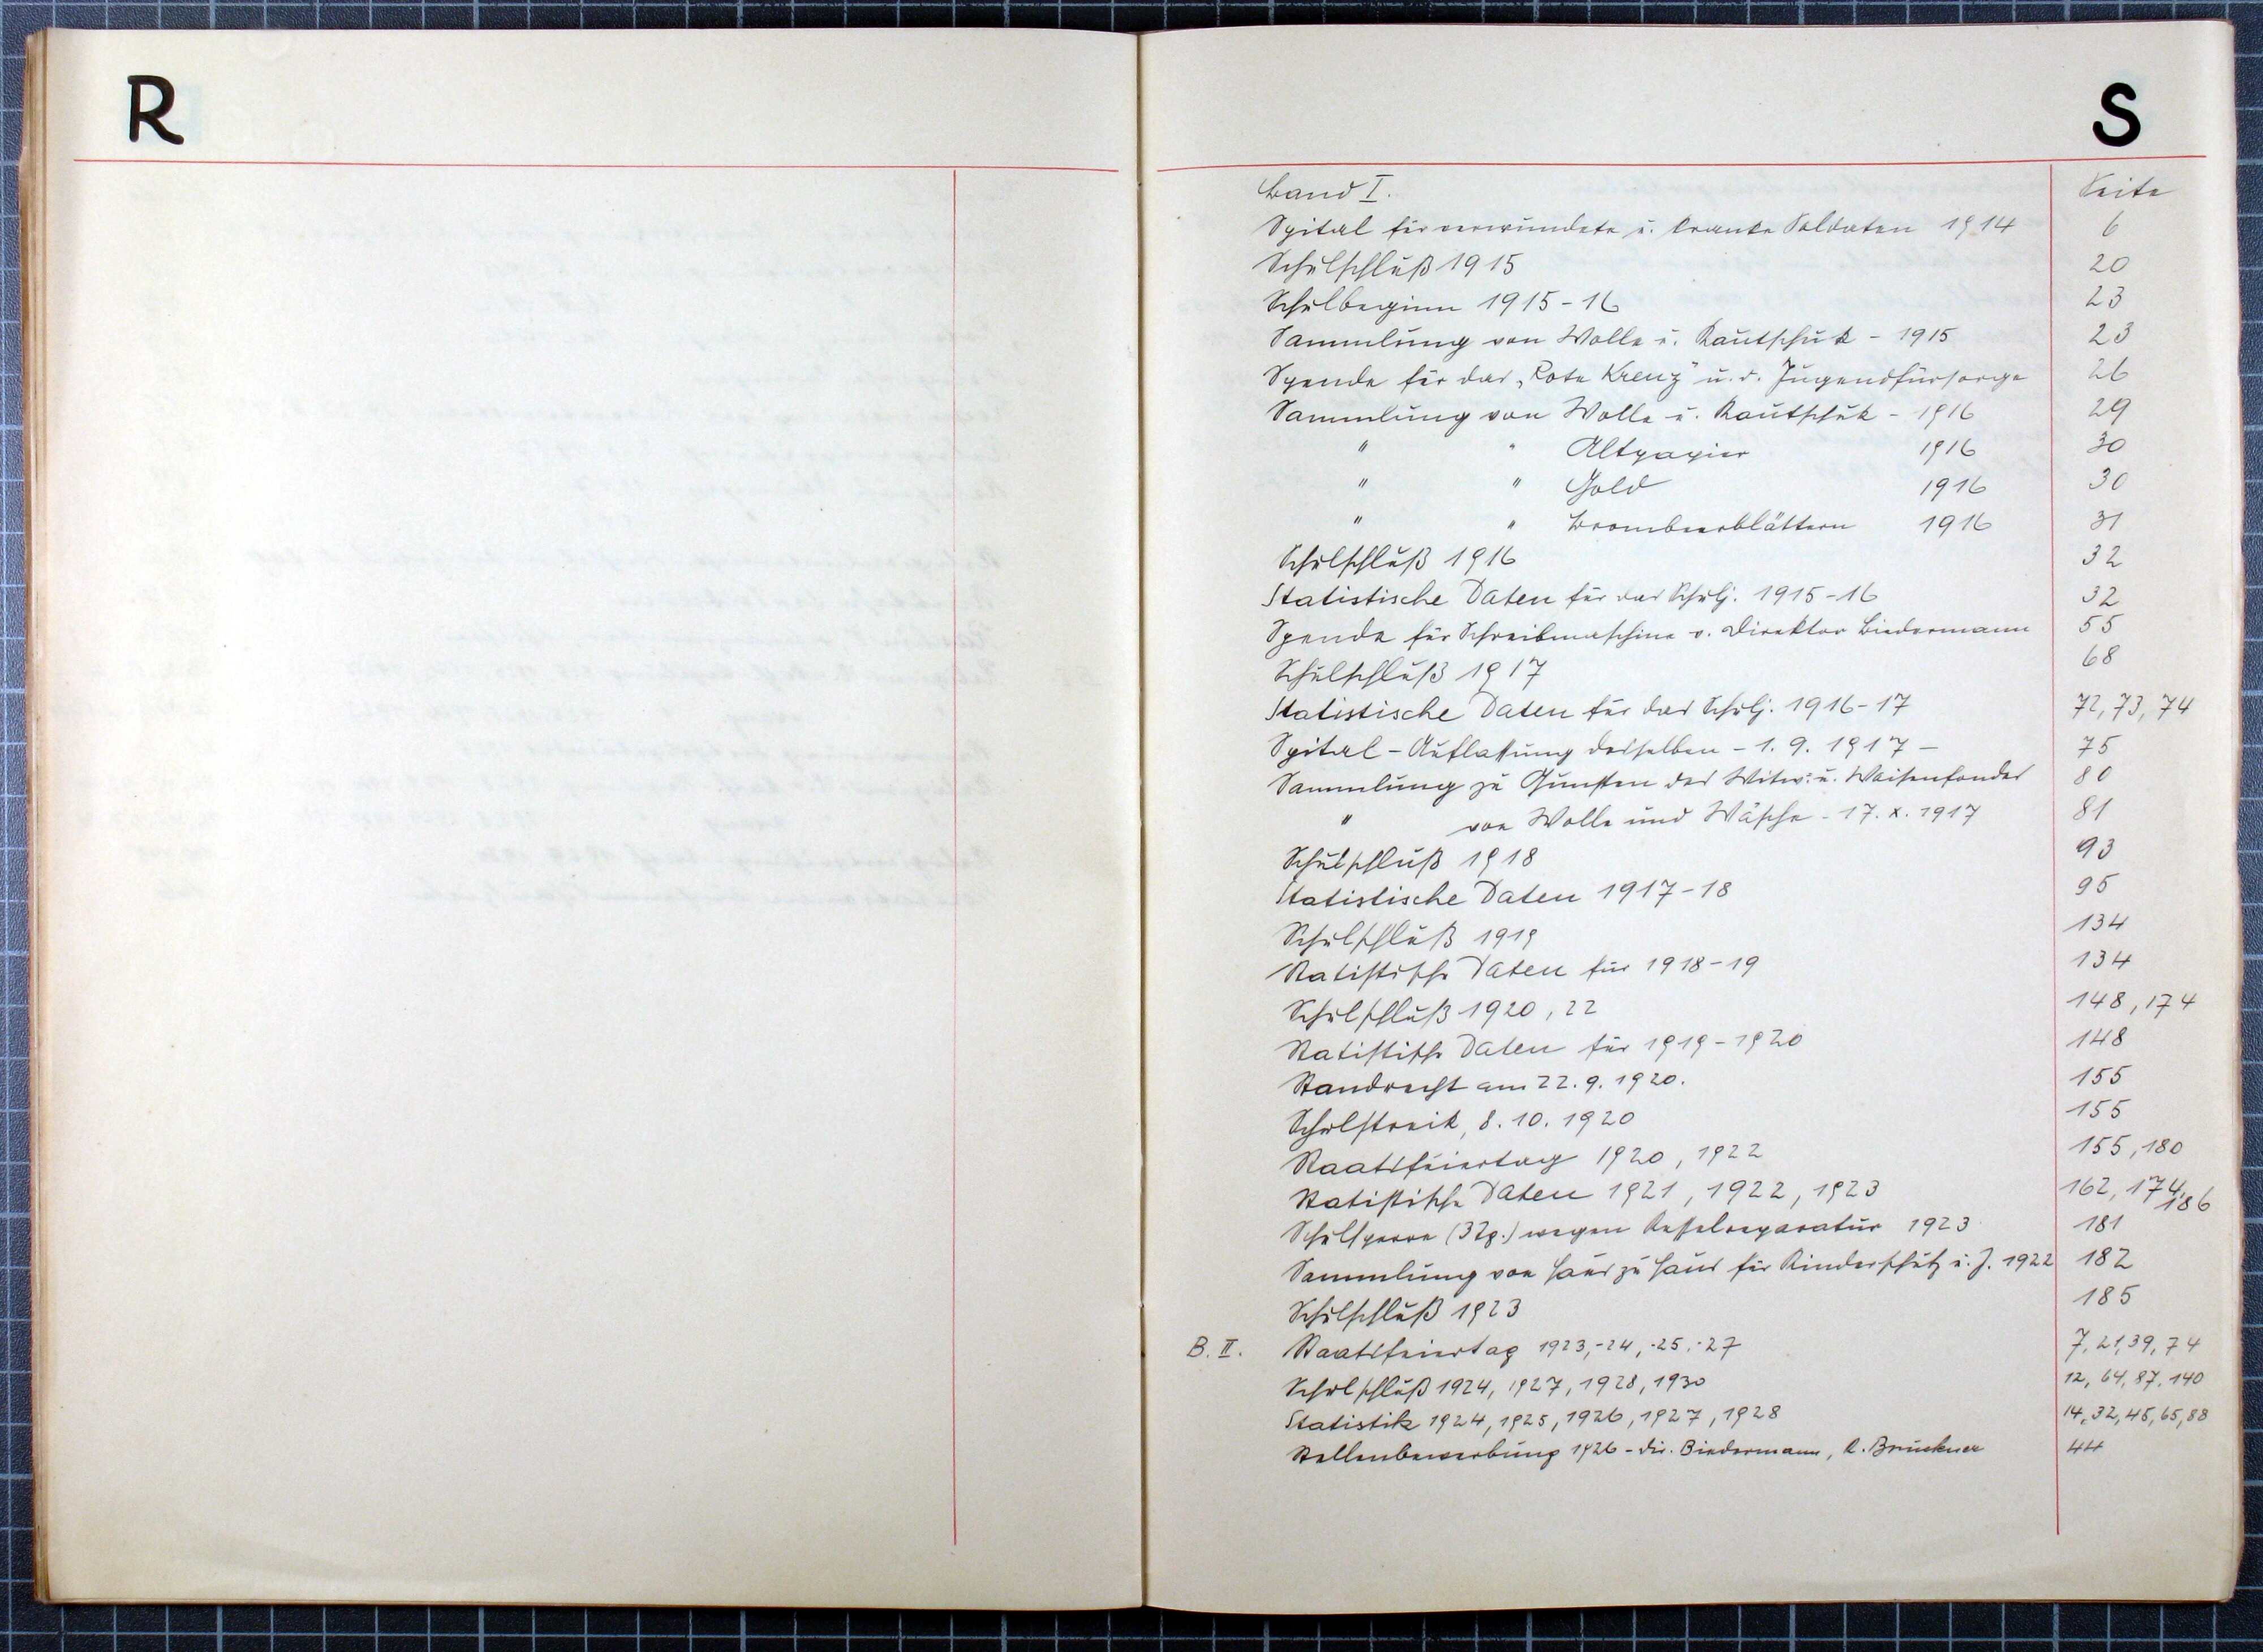 R
S
Band I. Seite
Spital für verwundete u. kranke Soldaten 1914 6
Schulschluß 1915 20
Schulbeginn 1915-16 23
Sammlung von Wolle u. Kautschuk - 1915 23
Spende für das „Rote Kreuz" u. d. Jugendfürsorge 26
Sammlung von Wolle u. Kautschuk - 1916 29
" " Altpapier 1916 30
" " Gold 1916 30
" " Brombeerblättern 1916 31
Schulschluß 1916 32
Statistische Daten für das Schulj. 1915-16 32
Spende für Schreibmaschine v. Direktor Biedermann 55
Schulschluß 1917 68
Statistische Daten für das Schulj. 1916-17 72, 73, 74
Spital - Auflassung desselben - 1. 9. 1917 - 75
Sammlung zu Gunsten des Witw. u. Waisenfondes 80
" von Wolle und Wäsche - 17. X. 1917 81
Schulschluß 1918 93
Statistische Daten 1917-18 95
Schulschluß 1919 134
Statistische Daten für 1918-19 134
Schulschluß 1920, 22 148, 174
Statistische Daten für 1919-1920 148
Standrecht am 22. 9. 1920. 155
Schulstreik, 8. 10. 1920 155
Staatsfeiertag 1920, 1922 155, 180
Statistische Daten 1921, 1922, 1923 162, 174, 186
Schulsperre (3 Tg.) wegen Kesselreparatur 1923 181
Sammlung von Haus zu Haus für Kinderschutz u. J. 1922 182
Schulschluß 1923 185
B. II. Staatsfeiertag 1923,-24,-25,-27 7, 21, 39, 74
Schulschluß 1924, 1927, 1928, 1930 12, 64, 87, 140
Statistik 1924, 1925, 1926, 1927, 1928 14, 32, 45, 65, 88
Stellenbewerbung 1926 - Dir. Biedermann, K. Bruckner 44